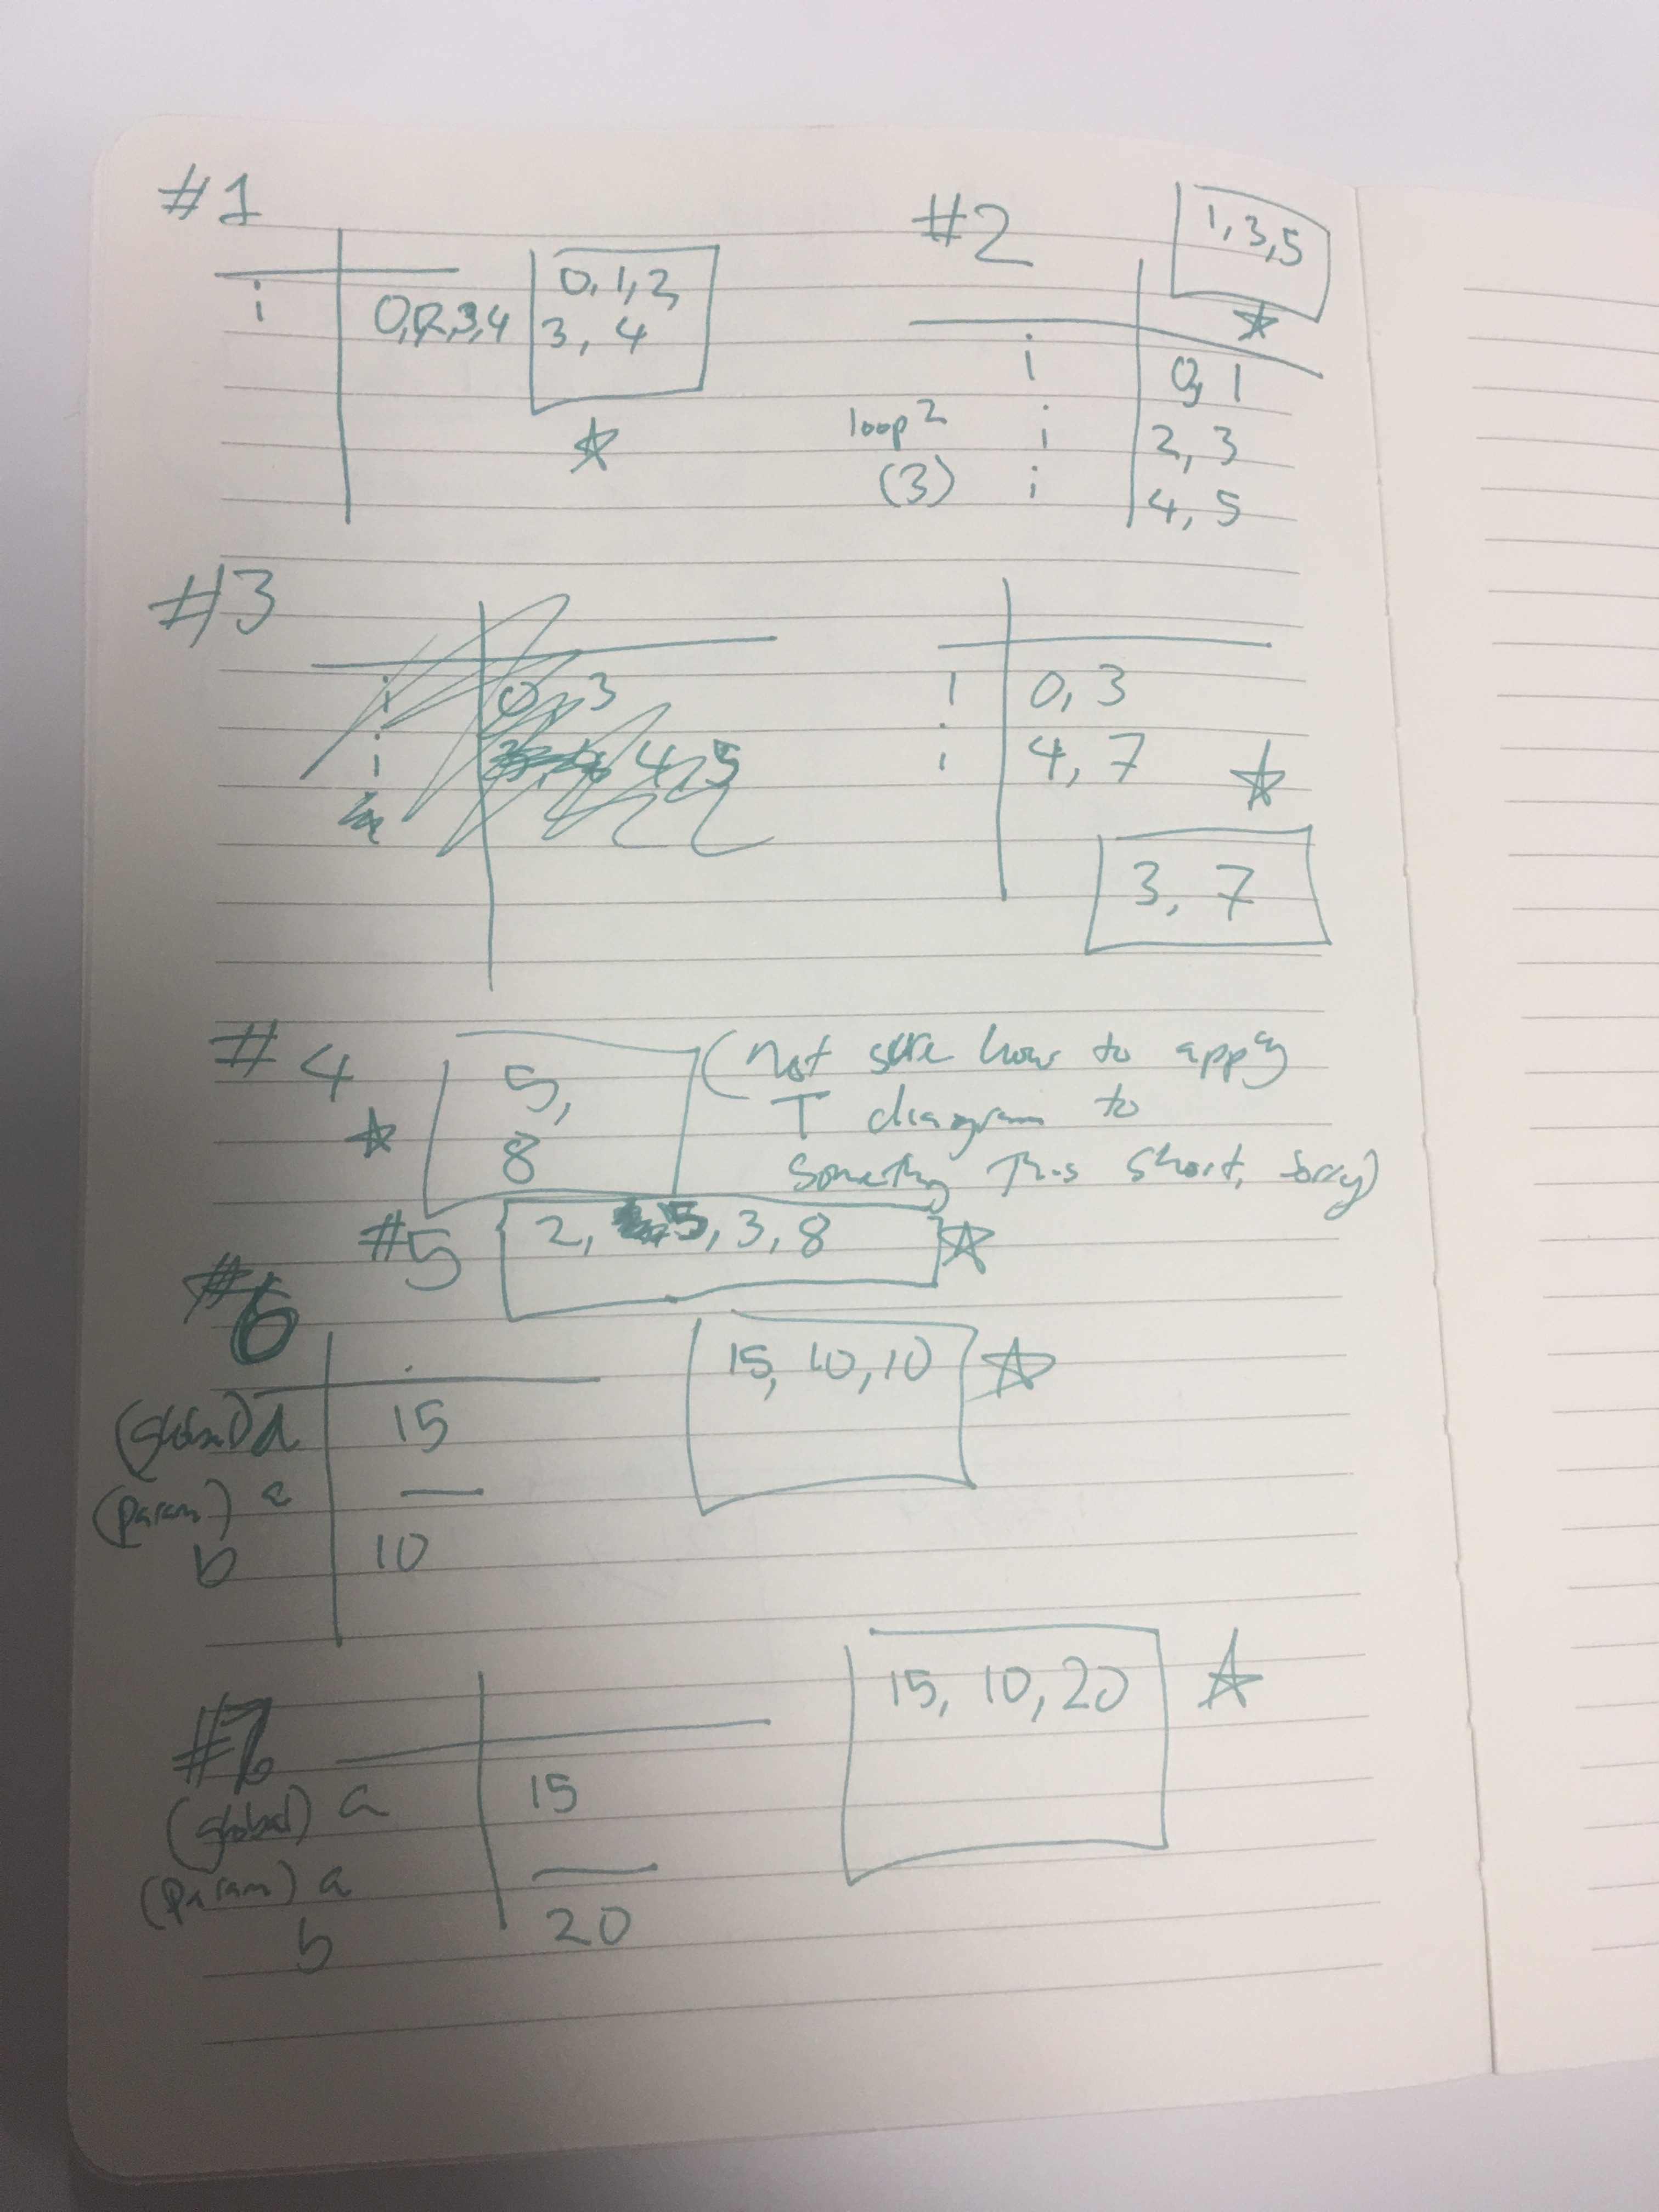 #1
i 0,1,2,3,4
0, 1, 2,
3, 4
#2
1, 3, 5
i 0, 1
loop 2 i 2, 3
(3) i 4, 5
#3
i 0, 3
i 4, 5
i 0, 3
i 4, 7
3, 7
#4
5,
8
(not sure how to apply
T diagram to
something this short, sorry)
#5 2, 5, 3, 8
#6
15, 10, 10
(global) a 15
(param) a —
b 10
#7
15, 10, 20
(global) a 15
(param) a —
b 20